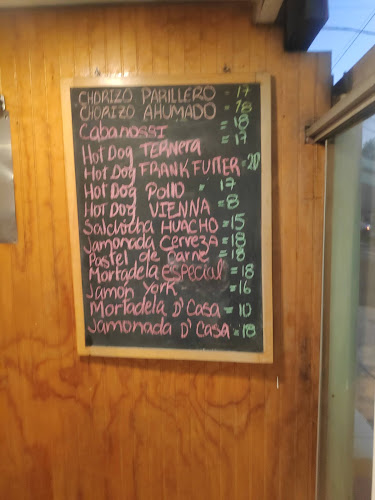 CHORIZO PARILLERO - 17
CHORIZO AHUMADO = 18
Cabanossi = 18
Hot Dog Ternera = 17
Hot Dog FRANK FUTTER = 20
Hot Dog Pollo = 17
Hot Dog VIENNA = 8
Salchicha HUACHO = 15
Jamonada Cerveza = 18
Pastel de Carne = 18
Mortadela especial = 18
Jamon York - = 16
Mortadela D' Casa = 10
Jamonada D' Casa = 18